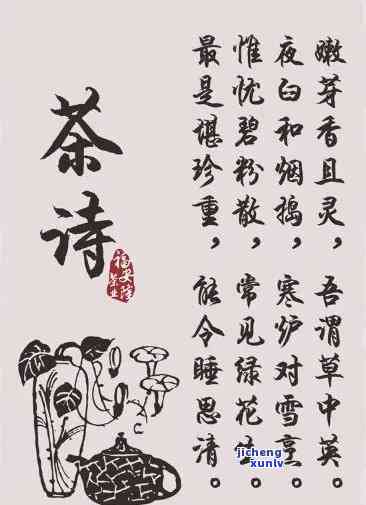 茶诗
嫩芽香且灵，吾谓草中英。
夜臼和烟捣，寒炉对雪烹。
惟忧碧粉散，常见绿花。
最是谌珍重，能令睡思清。
福安
茶业
jicheng
xunlv